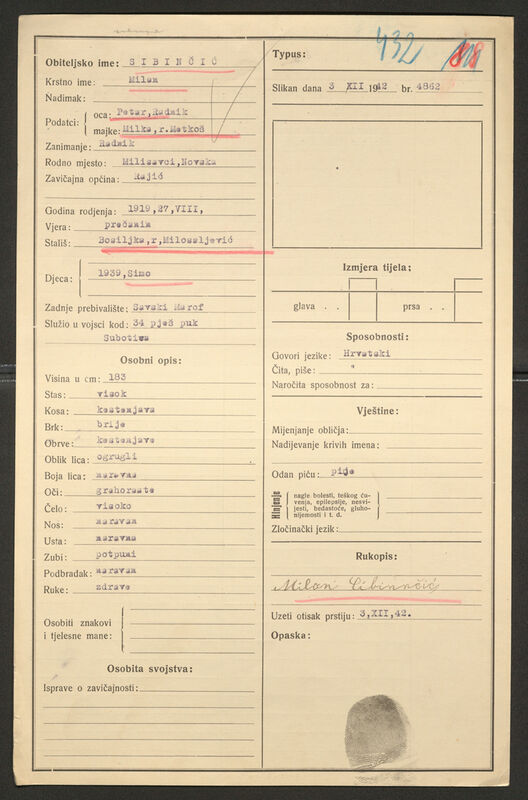 Obiteljsko ime: SIBINČIĆ
Krstno ime: Milan
Nadimak:
Podatci: oca: Petar,Radnik
majke: Milka,r.Metkoš
Zanimanje: Radnik
Rodno mjesto: Milisavci,Novska
Zavičajna općina: Rajić
Godina rodjenja: 1919,27,VIII,
Vjera: prečanin
Stališ: Bosiljka,r,Milosaljević
Djeca: 1939,Simo
Zadnje prebivalište: Savski Marof
Služio u vojsci kod: 34 pješ puk
Subotica
Osobni opis:
Visina u cm: 183
Stas: visok
Kosa: kestenjava
Brk: brije
Obrve: kestenjave
Oblik lica: ogrugli
Boja lica: naravna
Oči: grahoraste
Čelo: visoko
Nos: naravan
Usta: naravna
Zubi: potpuni
Podbradak: naravan
Ruke: zdrave
Osobiti znakovi
i tjelesne mane:
Osobita svojstva:
Isprave o zavičajnosti:
432
Typus:
Slikan dana 3 XII 1942 br. 4862
Izmjera tijela:
glava . . prsa . .
Sposobnosti:
Govori jezike: Hrvatski
Čita, piše: "
Naročita sposobnost za:
Vještine:
Mijenjanje obličja:
Nadijevanje krivih imena:
Odan piću: pije
Hinjenje nagle bolesti, teškog ću-
venja, epilepsije, nesvi-
jesti, bedastoće, gluho-
nijemosti i t. d.
Zločinački jezik:
Rukopis:
Milan Cibinčić
Uzeti otisak prstiju: 3,XII,42.
Opaska: